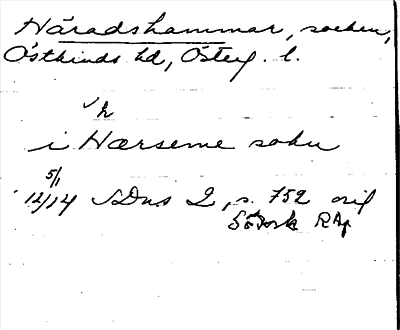 Häradshammar, socken,
Östkinds hd, Österg. l.
i Hærseme sokn
5/1
12/14 SDns 2, s. 752 orig
RAp